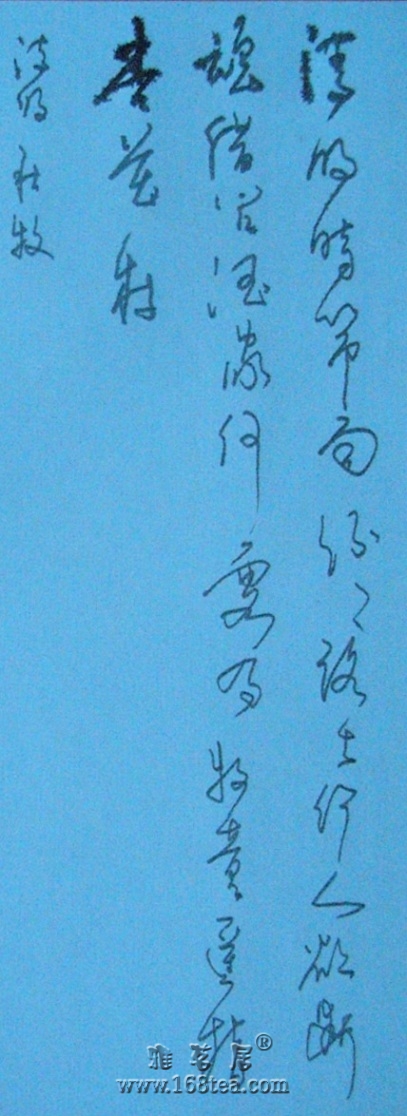 清明時節雨紛々路上行人欲斷
魂借問酒家何處有牧童遙指
杏花村
清明 杜牧
雅茗居®
www.168tea.com